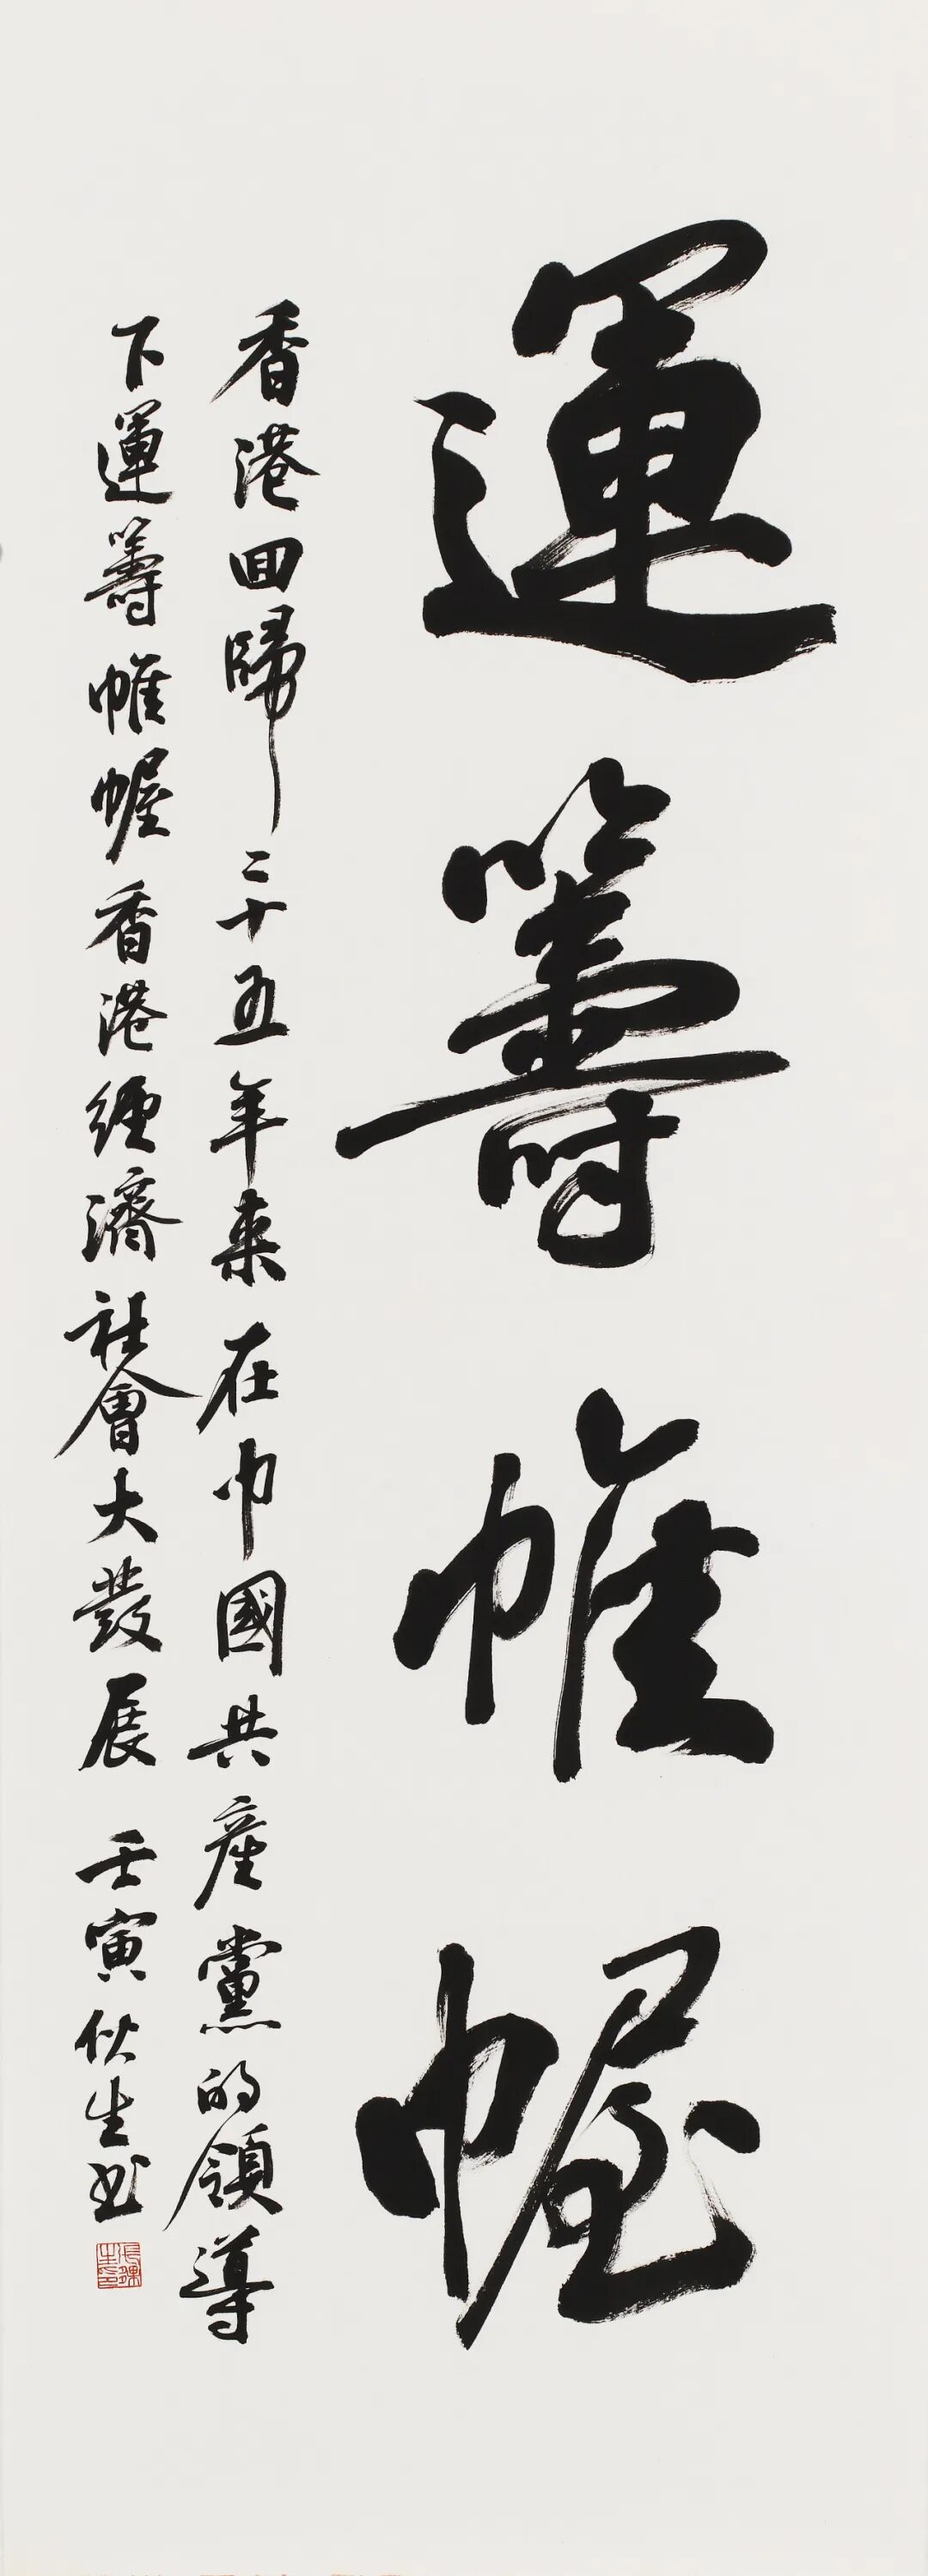 運籌帷幄
香港回歸二十五年来在中國共產黨的領導
下運籌帷幄香港經濟社會大發展 壬寅 伏生书